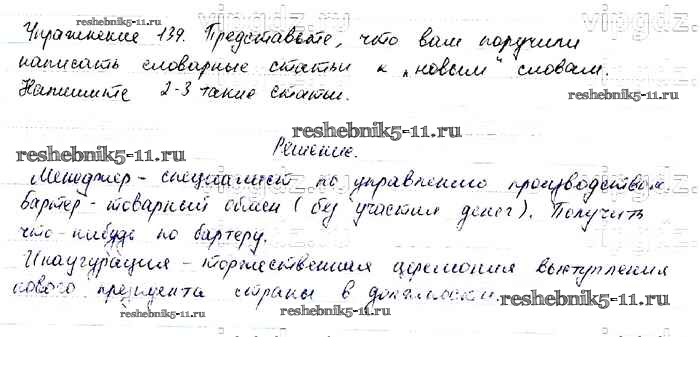 reshebnik5-11.ru
vipgdz.ru
Упражнение 139. Представьте, что вам поручили
написать словарные статьи к „новым" словам.
Напишите 2-3 такие статьи.
reshebnik5-11.ru
reshebnik5-11.ru
Решение.
reshebnik5-11.ru
Менеджер - специалист по управлению производством.
Бартер - товарный обмен (без участия денег). Получить
что-нибудь по бартеру.
Инаугурация - торжественная церемония выступления
нового президента страны в должность.
reshebnik5-11.ru
reshebnik5-11.ru
reshebnik5-11.ru